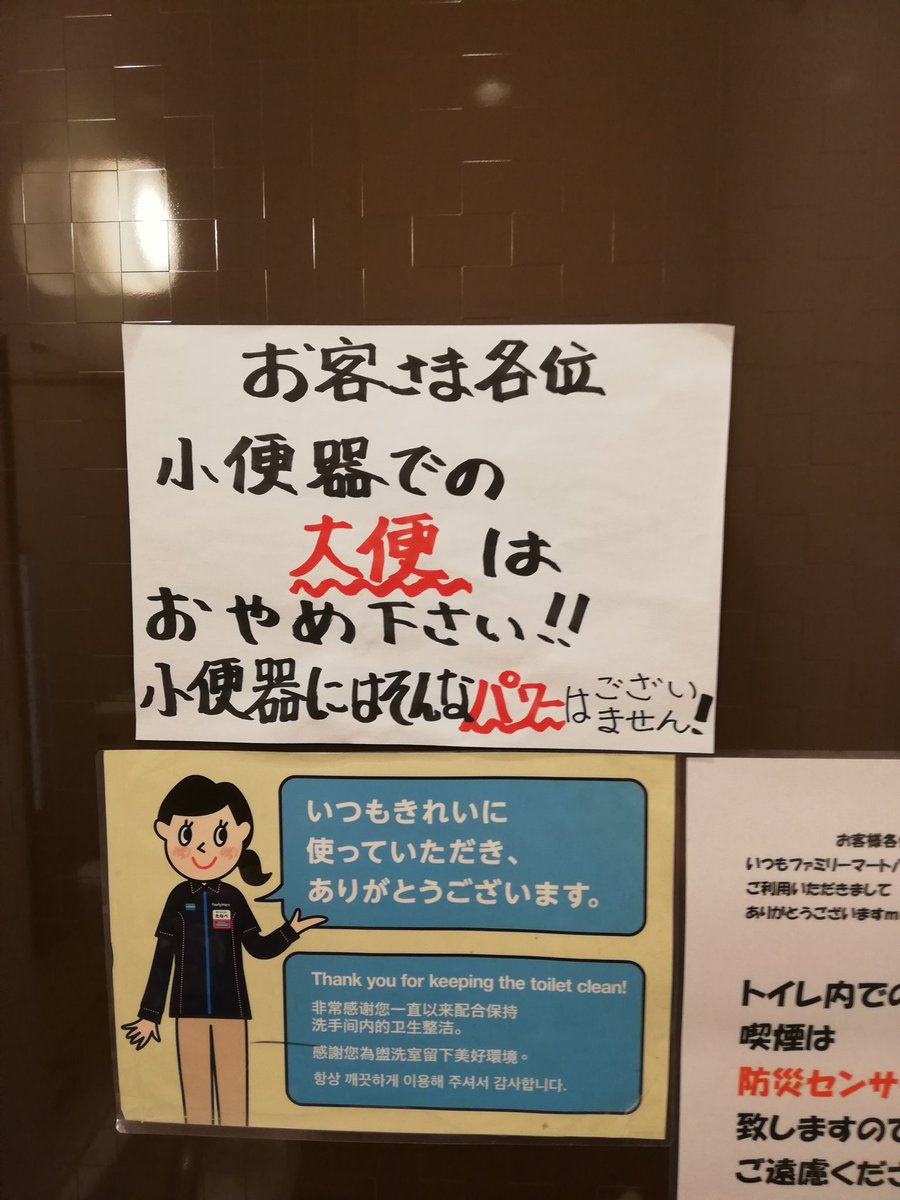 お客さま各位
小便器での
大便は
おやめ下さい!!
小便器にはそんなパワーはございません!
いつもきれいに
使っていただき、
ありがとうございます。
FamilyMart
たなべ
Thank you for keeping the toilet clean!
非常感谢您一直以来配合保持
洗手间内的卫生整洁。
感謝您為盥洗室留下美好環境。
항상 깨끗하게 이용해 주셔서 감사합니다.
お客様各
いつもファミリーマート
ご利用いただきまして
ありがとうございますm
トイレ内での
喫煙は
防災センサ
致しますので
ご遠慮くださ